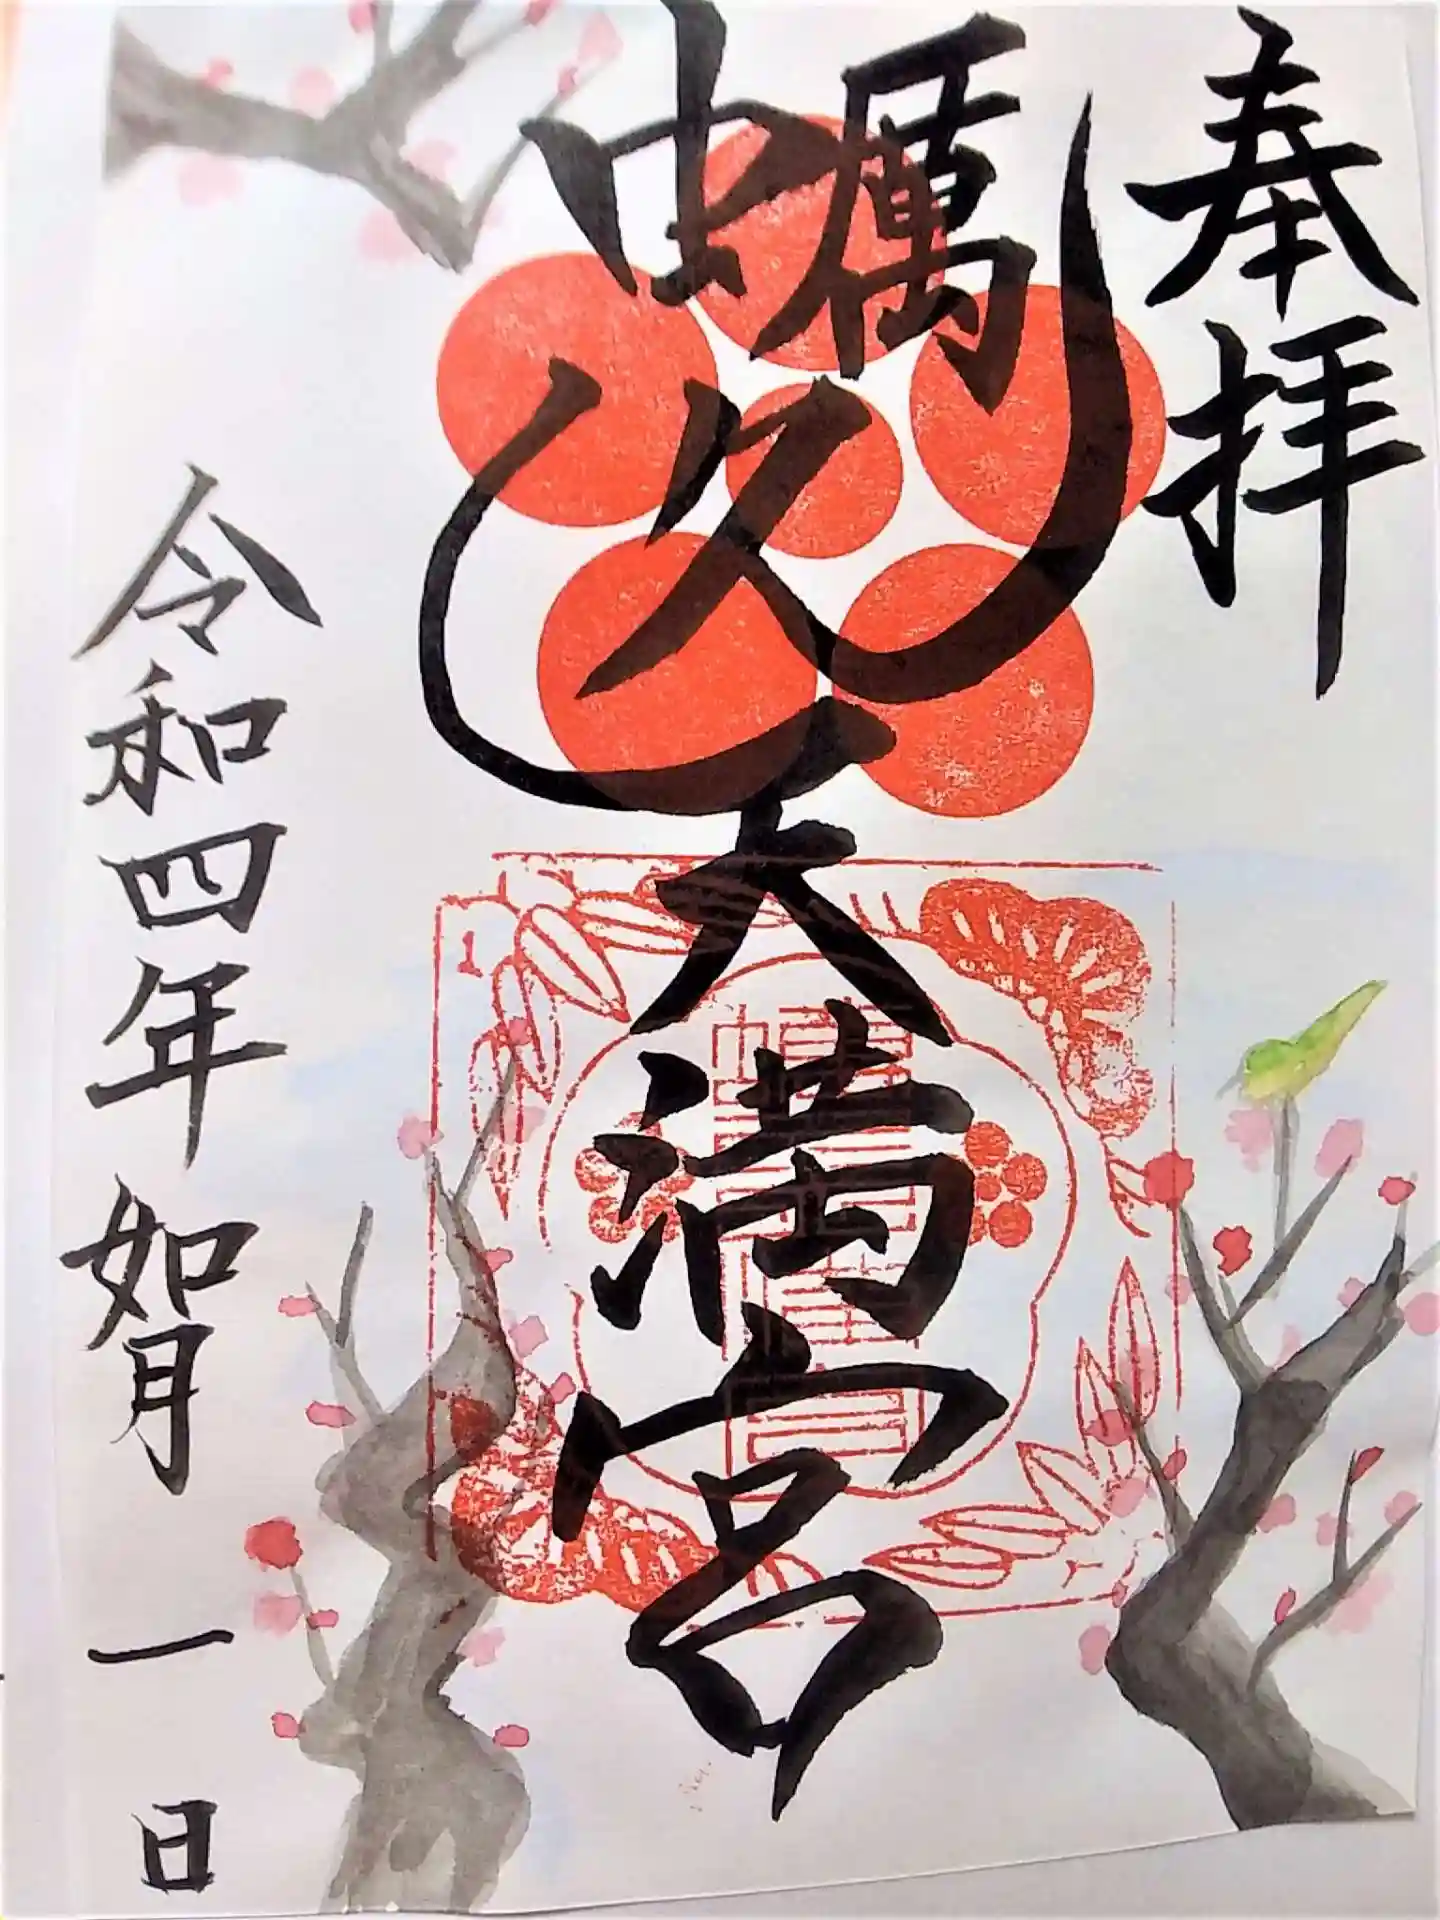 奉拝
蠣久天満宮
令和四年 如月 一日